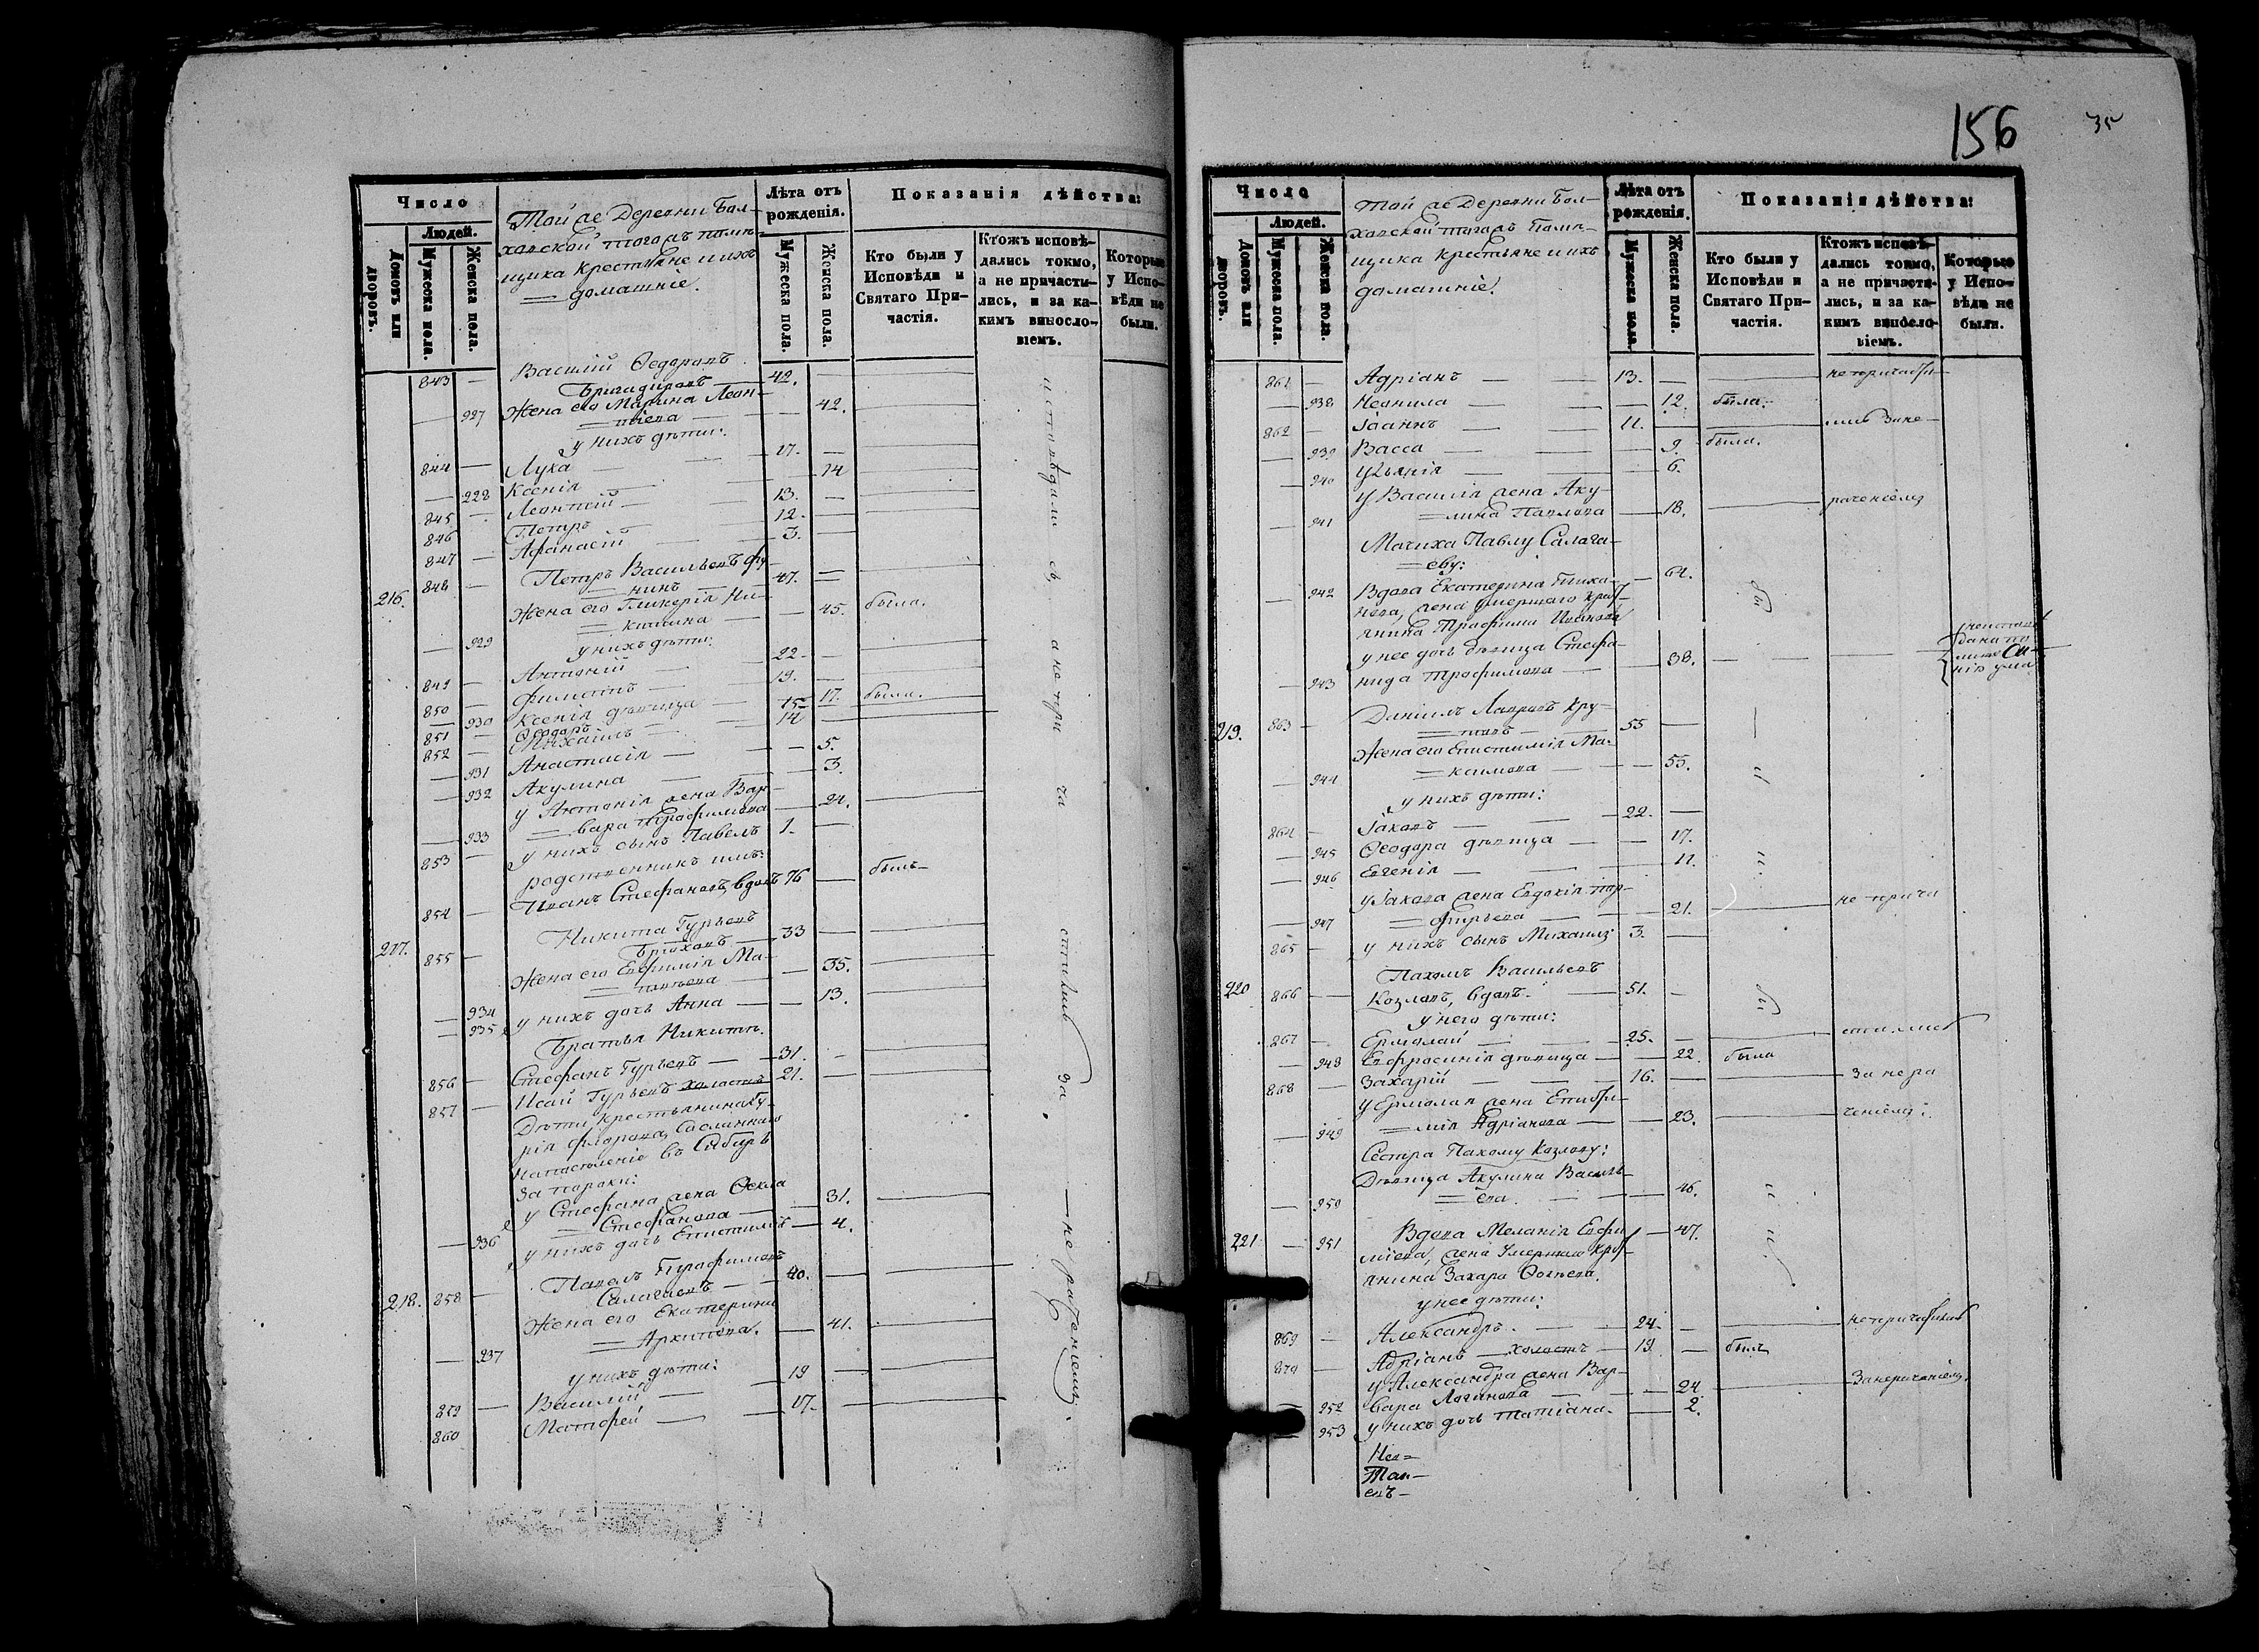 156
35
Число
Людей.
Домовъ или дворовъ.
Мужеска пола.
Женска пола.
Той же Деревни Бол-
ховской тогожъ поме-
щика Крестьяне и ихъ
домашніе.
Лѣта отъ рожденія.
Мужеска пола.
Женска пола.
Показанія дѣйства:
Кто были у Исповѣди и Святаго При-частія.
Ктожъ исповѣ-дались токмо, а не причасти-лись, и за ка-кимъ винослo-віемъ.
Которые у Испо-вѣди не были.
843 — Василій Ѳедоровъ
Бригадировъ — 42.
— 927 Жена его Марина Леон-
тіева — 42.
у нихъ дѣти:
844 — Лука — 17. —
— 928 Ксенія — 14
845 — Леонтій — 13. —
846 Петръ — 12. —
847 — Афанасій — 3. —
216. 848 — Петръ Васильевъ Фу-
нинъ — 47. —
Жена его Гликерія Ни-
китина — 45. была.
— 929 у нихъ дѣти:
849 — Антоній — 22. —
850 — Филиппъ — 19. —
— 930 Ксенія дѣвица — 17. была.
851 — Ѳеодоръ — 15
852 — Михаилъ — 14
— 931 Анастасія — 5.
— 932 Акулина — 3.
у Антонія жена Вар-
— 933 вара Трофимова — 24.
853 — у нихъ сынъ Павелъ 1. —
родственникъ имъ:
854 — Иванъ Стефановъ, вдовъ 76 — былъ
Никита Гурьевъ
217. 855 — 33 —
Жена его Евфимія Ма-
— 934 — 35.
— 935 у нихъ дочь Анна — 13.
Братья Никиты.
856 — Стефанъ Гурьевъ — 31. —
857 — Исай Гурьевъ холостъ 21. —
Дѣти крестьянина Гу-
рія сосланнаго
на поселеніе въ Сибирь
за пороки:
у Стефана жена Ѳекла
— 936 Стефанова — 31.
у нихъ дочь Епистимія — 4.
Павелъ Трофимовъ
218. 858 — Салагаевъ — 40. —
Жена его Екатерина
— 937 Архипова. — 41.
у нихъ дѣти:
859 — Василій — 19
860 Матфей — 17.
исповѣдались, а не прича стились за —нераченіемъ.
Число
Людей.
Домовъ или дворовъ.
Мужеска пола.
Женска пола.
Той же Деревни Бол-
ховской тогожъ Поме-
щика Крестьяне и ихъ
домашніе.
Лѣта отъ рожденія.
Мужеска пола.
Женска пола.
Показанія дѣйства:
Кто были у Исповѣди и Святаго При-частія.
Ктожъ исповѣ-дались токмо, а не причасти-лись, и за ка-кимъ винослo-віемъ.
Которые у Испо-вѣди не были.
861 — Адріанъ — 13. — не причасти-
— 938 Неонила — 12. была.
862 — Іоаннъ — 11. — лись за не-
— 939 Васса — 9. была.
— 940 Уліянія — 6.
у Василія жена Аку-
— 941 лина Павлова — 18. — раченіемъ
Мачиха Павлу Салага-
еву:
— 942 Вдова Екатерина Тихо-
нова, жена умершаго крес-
янина Трофима Иванова — 64.
у нее дочь дѣвица Стефа-
— 943 нида Трофимова — 38. — ума
219. 863 — Даніилъ Лавровъ Кру-
товъ — 55 —
Жена его Епистимія Ма-
— 944 ксимова — 55.
у нихъ дѣти:
864 — Іаковъ — 22. —
— 945 Ѳеодора дѣвица — 17.
— 946 Евгенія — 11.
у Іакова жена Евдокія пор-
— 947 фирьева — 21. — не прича
865 — у нихъ сынъ Михаилъ 3. —
Пахомъ Васильевъ
220 866 — Козловъ, вдовъ. — 51. —
у него дѣти:
867 — Ермолай — 25. — стились
— 948 Евфросинія дѣвица — 22. была
868 — Захарій — 16. — за нера
у Ермолая жена Еписти-
— 949 мія Адріанова — 23. — ченіемъ.
Сестра Пахому Козлову:
Дѣвица Акулина Василь-
— 950 ева. — 46.
221 — 951 Вдова Меланія Евфи-
міева, жена Умершаго крес-
янина Захара Фотѣева. — 47.
у нее дѣти:
869 — Александръ. — 24. — не причастились
870 — Адріанъ — холостъ — 19. — былъ
у Александра жена Вар-
— 952 вара Логинова — 24 — за нераченіемъ.
— 953 у нихъ дочь Татіана. — 2.
бы — и — ли.
бы ли.